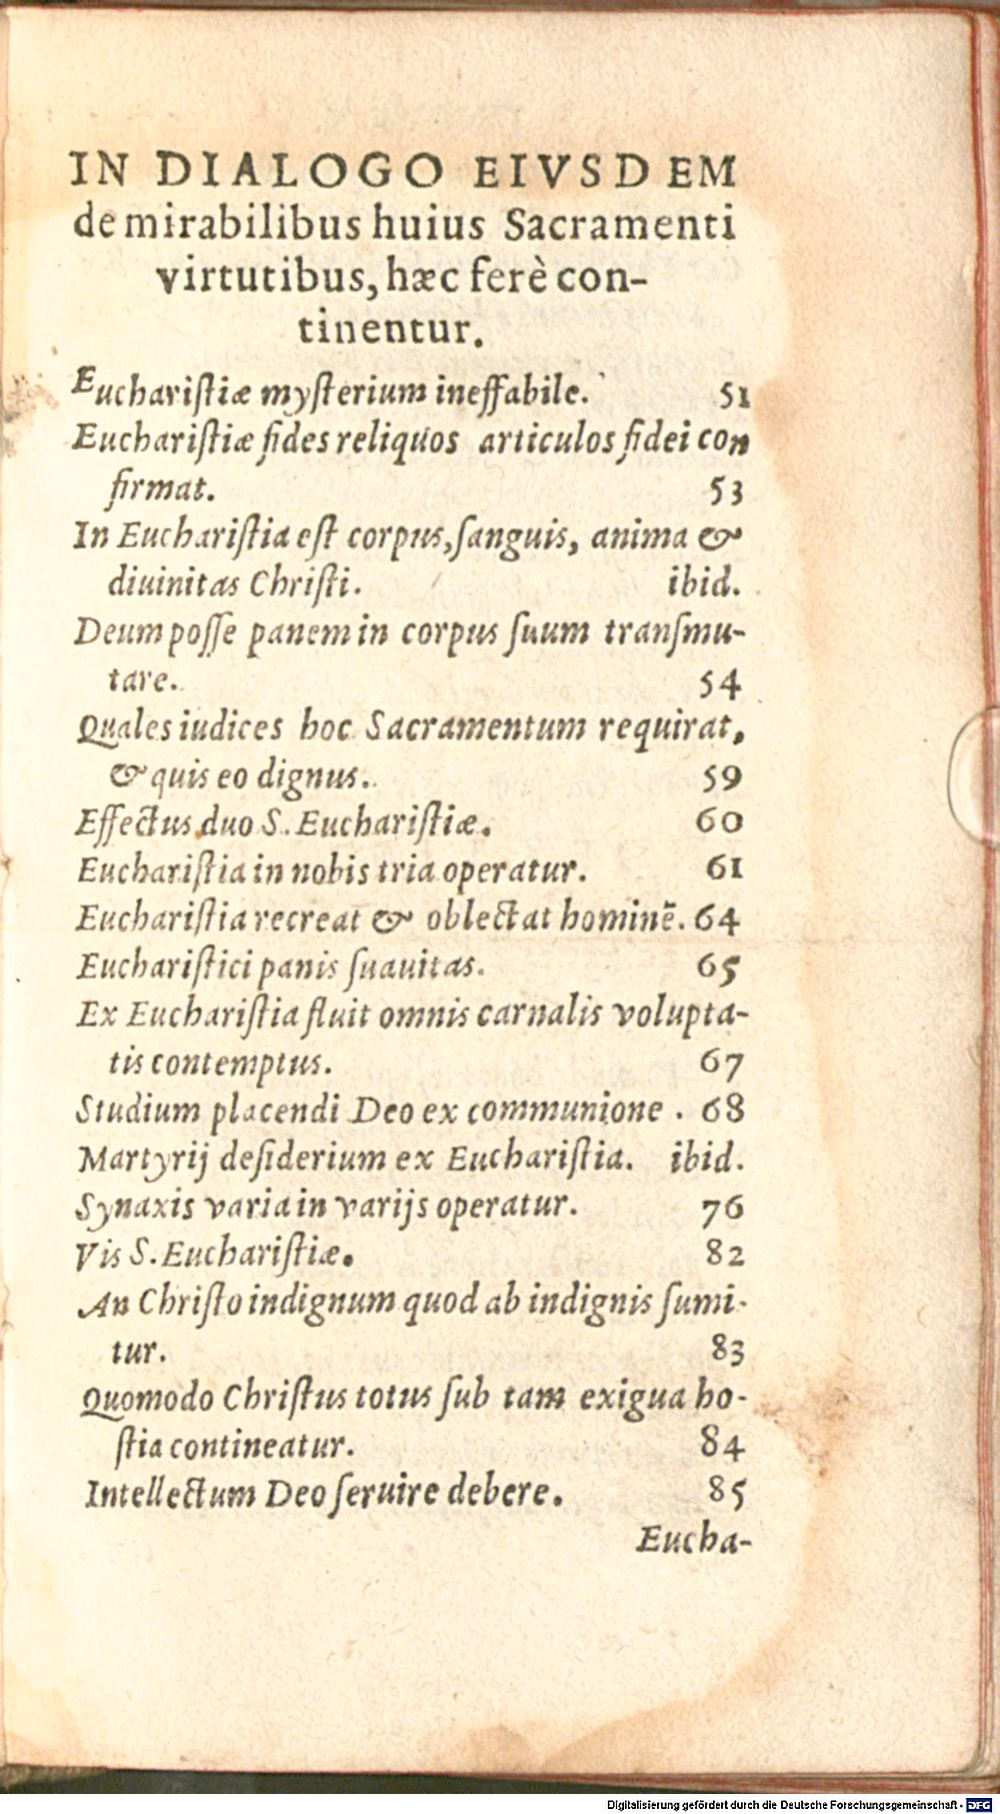 IN DIALOGO EIVSDEM
de mirabilibus huius Sacramenti
virtutibus, hæc ferè con-
tinentur.
Euchariſtiæ myſterium ineffabile. 51
Euchariſtiæ fides reliquos articulos fidei con
firmat. 53
In Euchariſtia eſt corpus, ſanguis, anima &
diuinitas Chriſti. ibid.
Deum poſſe panem in corpus ſuum tranſmu-
tare. 54
Quales iudices hoc Sacramentum requirat,
& quis eo dignus. 59
Effectus duo S. Euchariſtiæ. 60
Euchariſtia in nobis tria operatur. 61
Euchariſtia recreat & oblectat hominē. 64
Euchariſtici panis ſuauitas. 65
Ex Euchariſtia fluit omnis carnalis volupta-
tis contemptus. 67
Studium placendi Deo ex communione. 68
Martyrij deſiderium ex Euchariſtia. ibid.
Synaxis varia in varijs operatur. 76
Vis S. Euchariſtiæ. 82
An Chriſto indignum quod ab indignis ſumi-
tur. 83
Quomodo Chriſtus totus ſub tam exigua ho-
ſtia contineatur. 84
Intellectum Deo ſeruire debere. 85
Eucha-
Digitalisierung gefördert durch die Deutsche Forschungsgemeinschaft - DFG